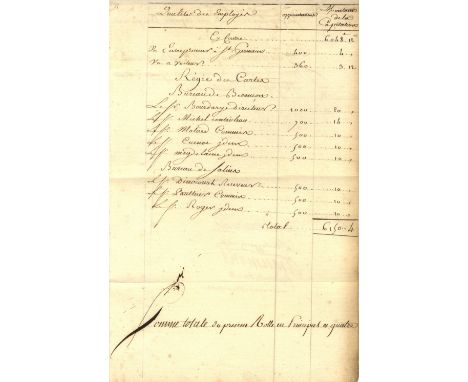 Qualités des Employés appointements Montant de la Capitation
Cy Contre 6048 12
Un Entrepreneur à St Germain 400 4
Un a voiturer 360 3 12
Régie des Cartes
Bureau de Besançon
Le Sr Bourdery Directeur 2000 80
Le Sr Michel controlleur 700 14
Le Sr Molard Commis 500 10
Le Sr Cuenot idem 500 10
Le Sr Magdelaine idem 500 10
Bureau de Salins
Le Sr Receveur 500 10
Le Sr Commis 500 10
Le Sr Roger idem 500 10
Total 6150 4
Somme totale du present Rolle en Principal et quatre